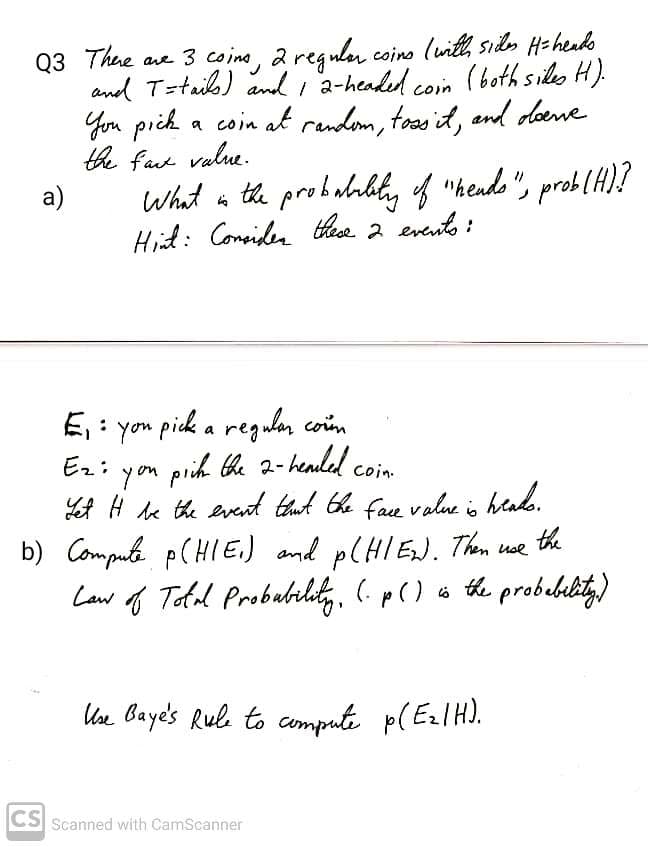 Q3 There are 3 coins, 2 regular coins (with sides H=heads
and T=tails) and 1 2-headed coin (both sides H).
You pick a coin at random, toss it, and observe
the face value.
a) What is the probability of "heads", prob(H)?
Hint: Consider these 2 events:
E₁: you pick a regular coin
E₂: you pick the 2-headed coin.
Let H be the event that the face value is heads.
b) Compute p(H|E₁) and p(H|E₂). Then use the
Law of Total Probability, (. p() is the probability.)
Use Baye's Rule to compute p(E₂|H).
CS Scanned with CamScanner